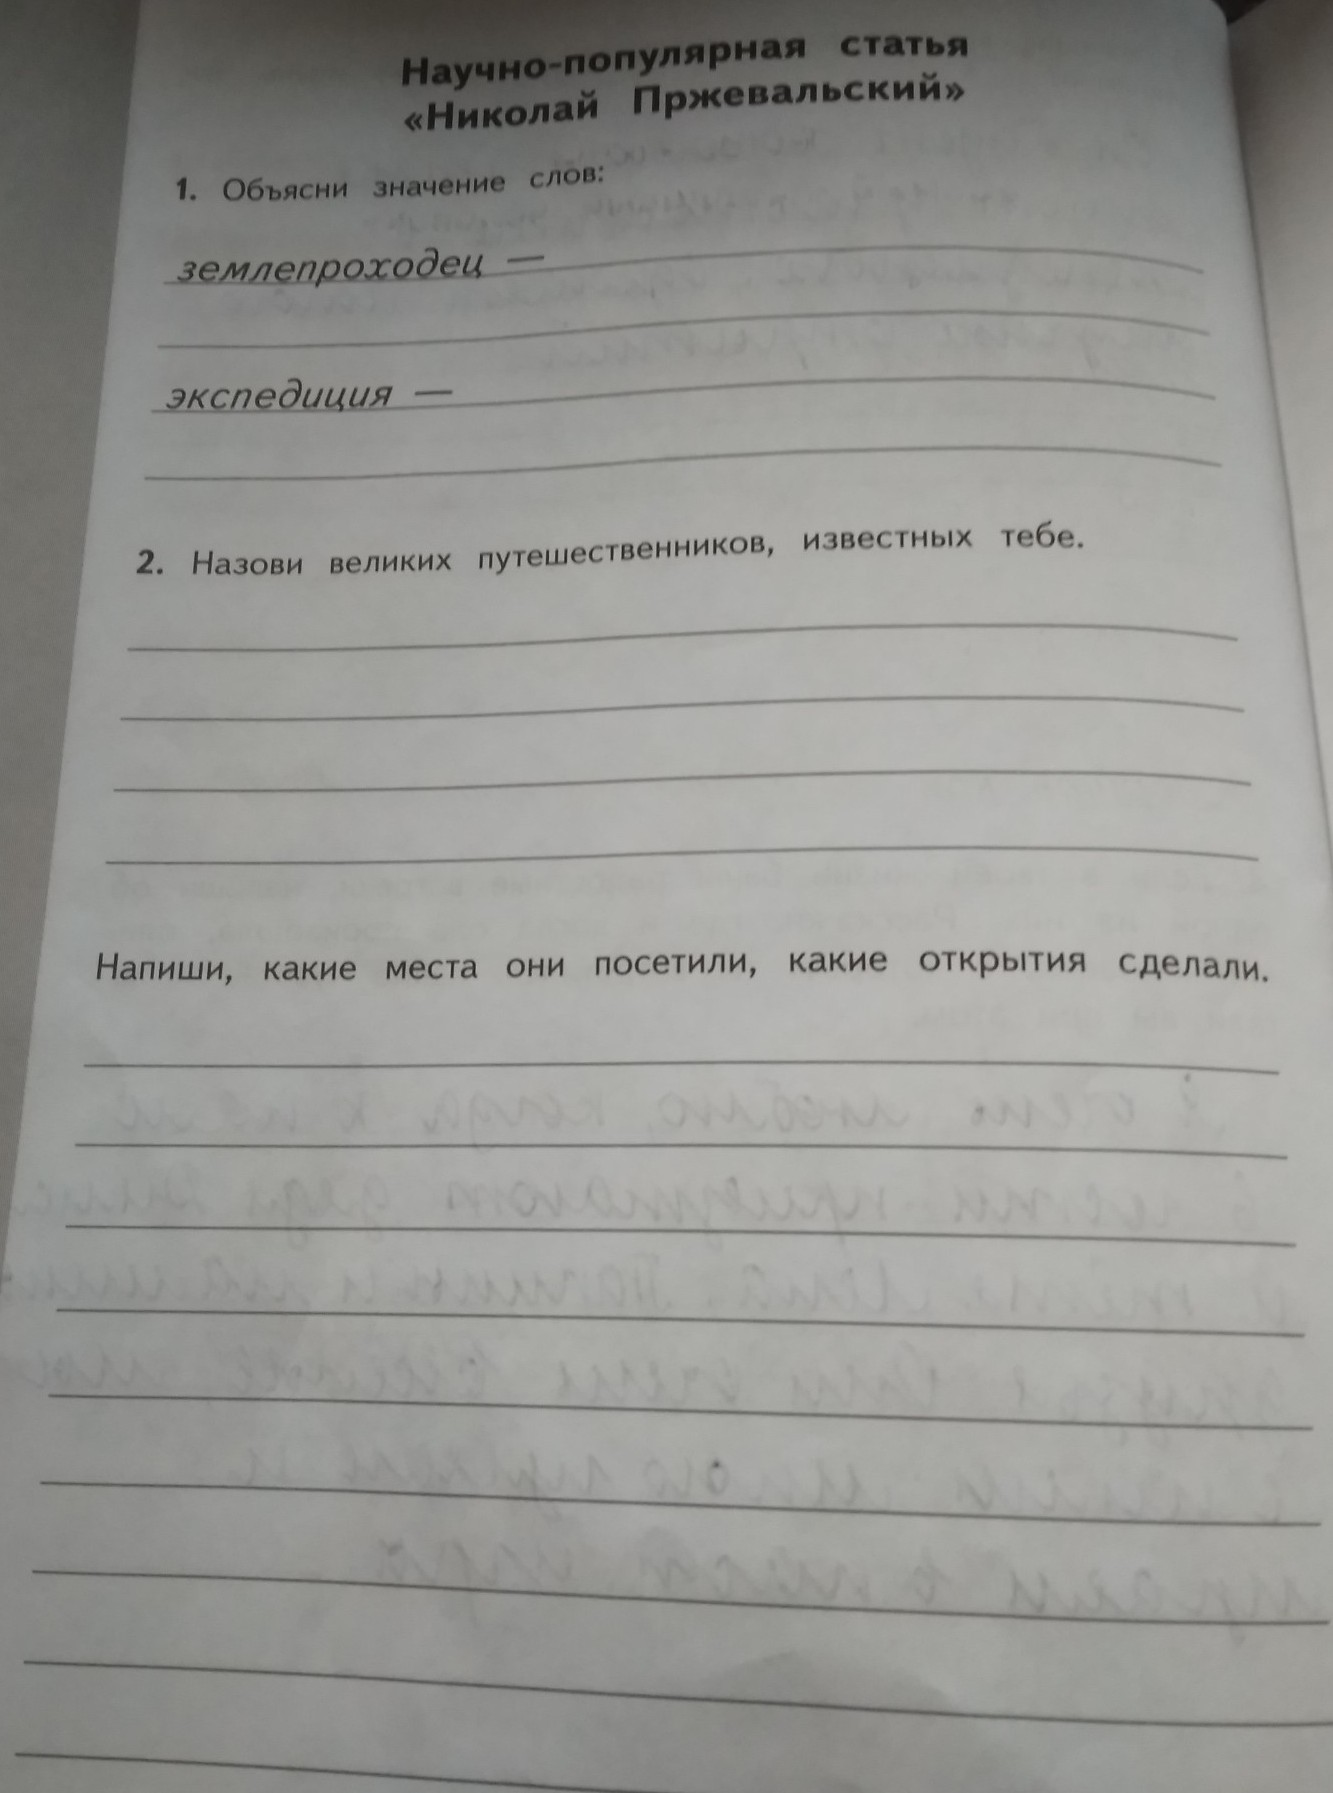 Научно-популярная статья
«Николай Пржевальский»
1. Объясни значение слов:
землепроходец —
экспедиция —
2. Назови великих путешественников, известных тебе.
Напиши, какие места они посетили, какие открытия сделали.